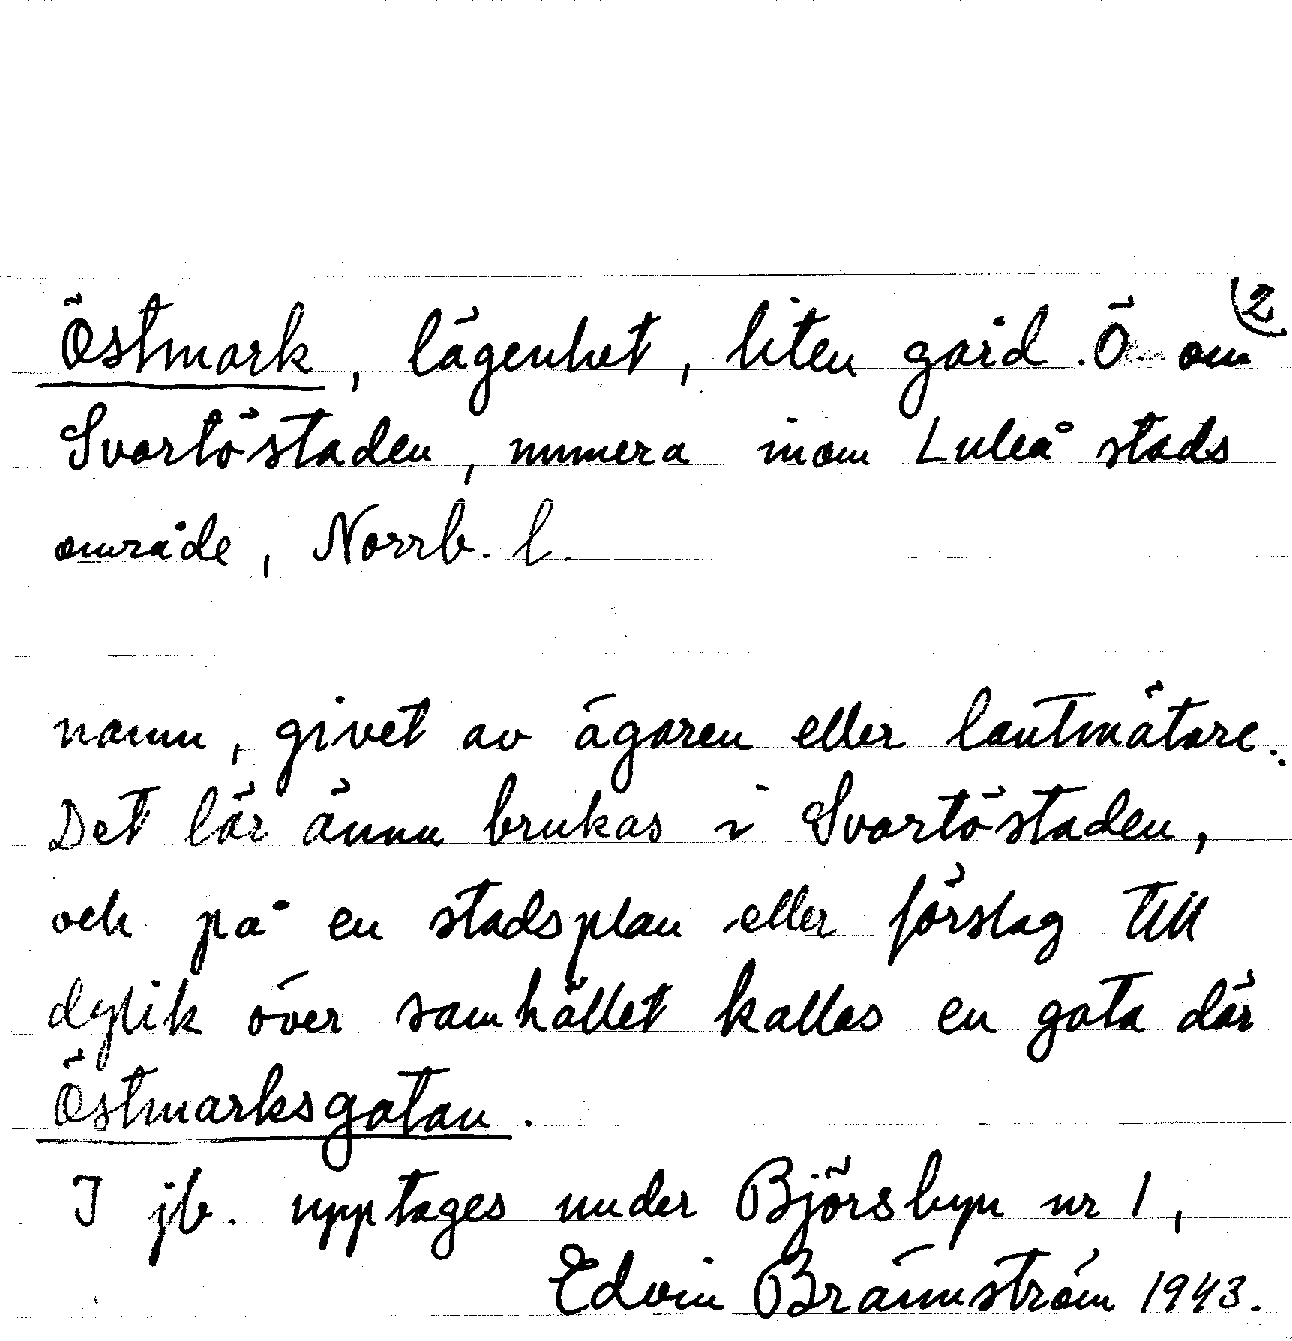 Östmark, lägenhet, liten gård. Ö om 2
Svartöstaden, numera inom Luleå stads
område, Norrb. l.
namn, givet av ägaren eller lantmätare.
Det lär ännu brukas i Svartöstaden,
och på en stadsplan eller förslag till
dylik över samhället kallas en gata där
Östmarksgatan.
I jb. upptages under Björsbyn nr 1,
Edvin Brännström 1943.